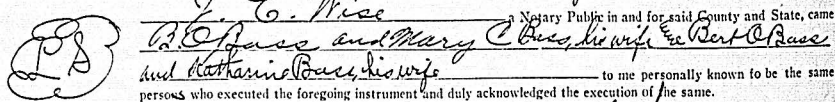 J. C. Wise a Notary Public in and for said County and State, came
L S B. O. Bass and Mary C Bass, his wife, Bert O Bass
and Katharine Bass, his wife to me personally known to be the same
persons who executed the foregoing instrument and duly acknowledged the execution of the same.